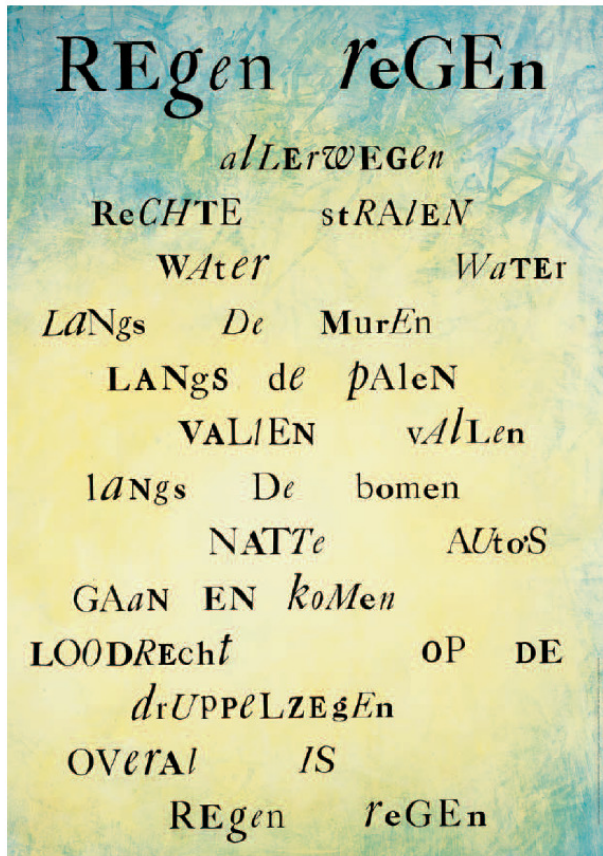 REgen reGEn
alLErwEGen
ReCHTE stRAlEN
WAter WaTEr
LaNgs De MurEn
LANgS de pAleN
VALlEN vAlLen
laNgs De bomen
NATTe AUto'S
GAaN EN koMen
LOODREcht OP DE
drUPPeLZEgEn
OVerAl IS
REgen reGEn